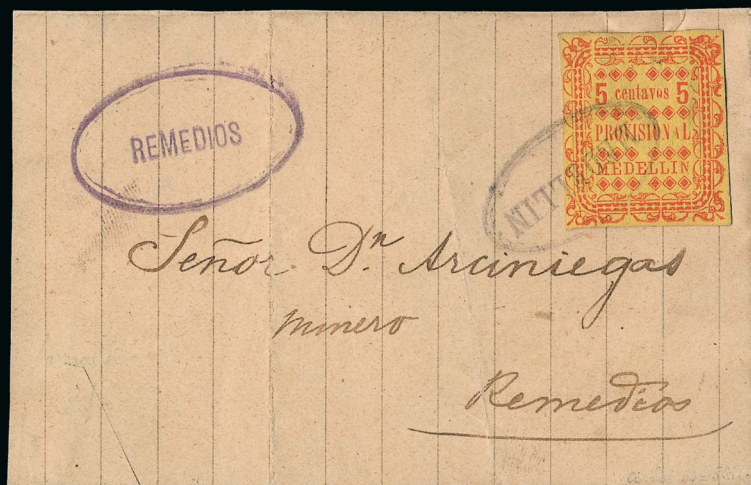 REMEDIOS
5 centavos 5
PROVISIONAL
MEDELLIN
MEDELLIN
Señor Dn Arciniegas
minero
Remedios